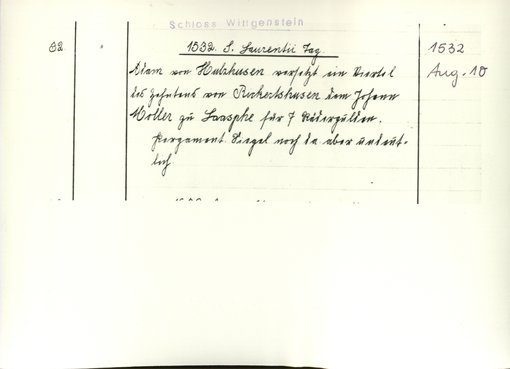 Schloss Wittgenstein
82 1532. S. Laurentii Tag. 1532
Adam von Hulzhusen versetzt ein Viertel Aug. 10
des Zehntens von Ruckertshusen dem Johann
Moller zu Laasphe für 7 Rädergülden.
Pergament. Siegel noch da aber undeut-
lich.